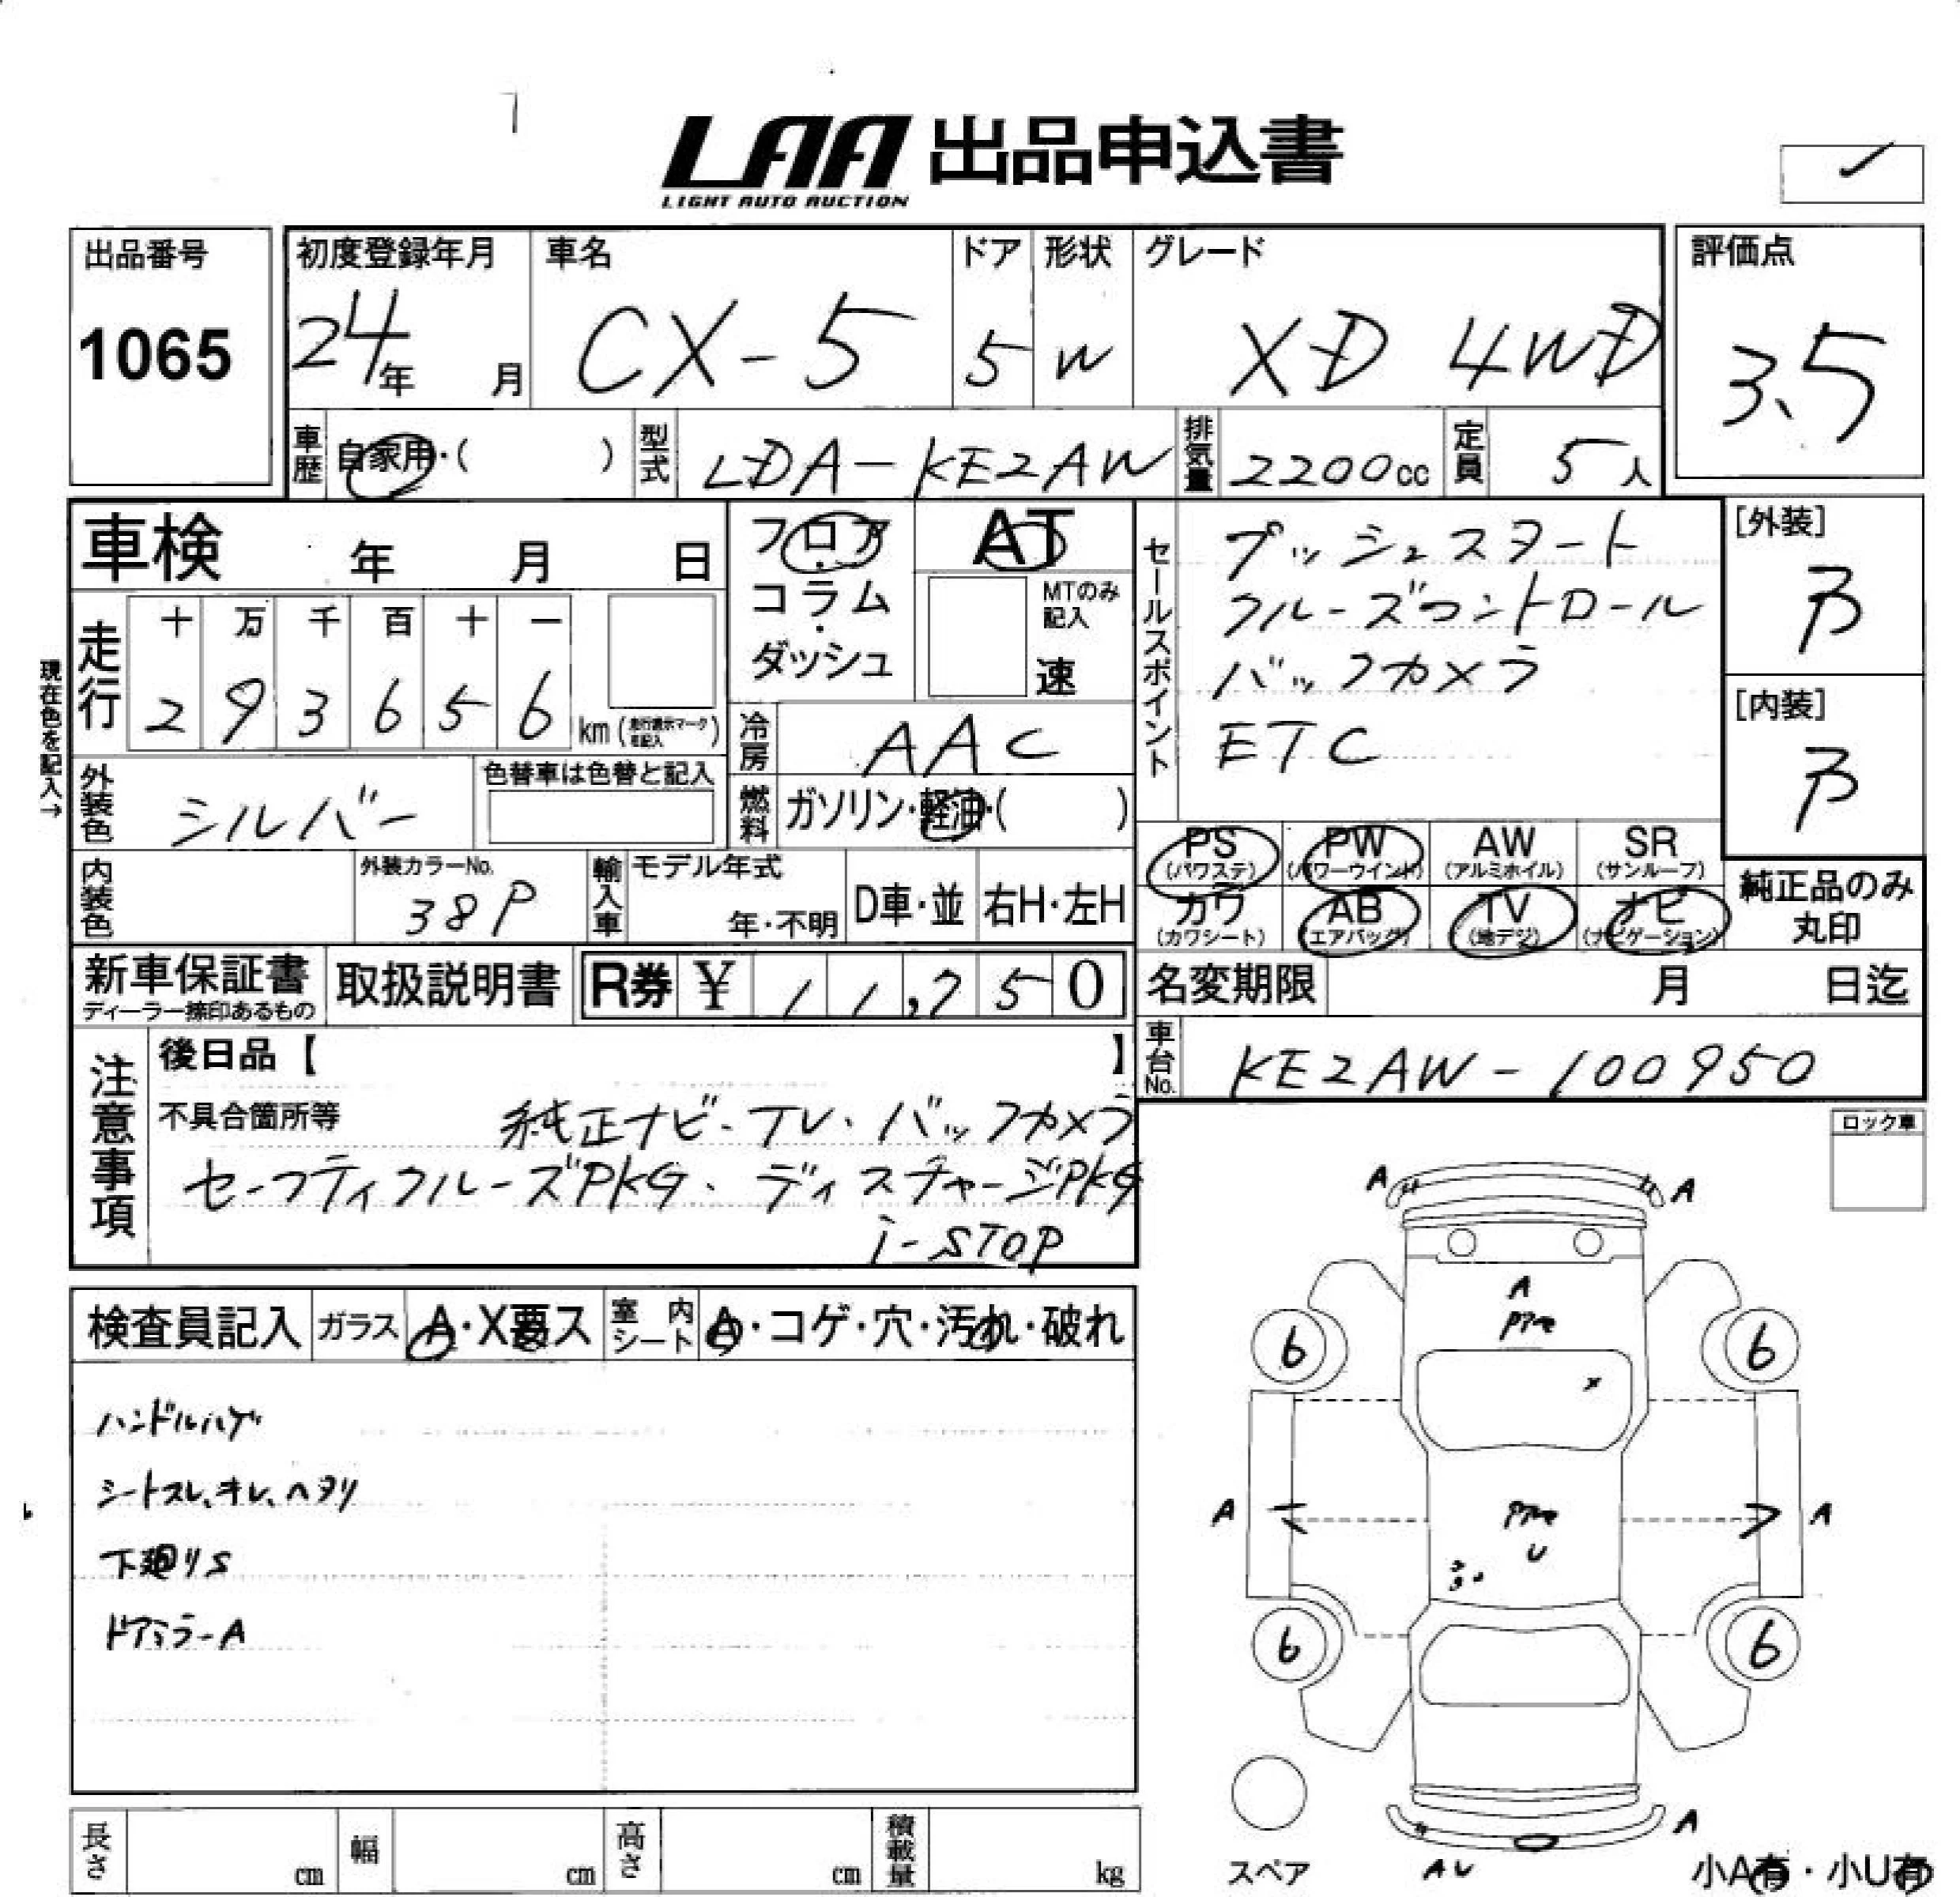 LAA 出品申込書
LIGHT AUTO AUCTION
出品番号
1065
初度登録年月
24年 月
車名
CX-5
ドア
5
形状
W
グレード
XD 4WD
評価点
3.5
車歴 自家用・( )
型式 LDA-KE2AW
排気量 2200cc
定員 5人
車検 年 月 日
フロア・コラム・ダッシュ
AT
MTのみ記入
速
セールスポイント
プッシュスタート
クルーズコントロール
バックカメラ
ETC
[外装]
B
[内装]
B
現在色を記入→
走行
十 万 千 百 十 一
2 9 3 6 5 6 km
冷房 AAC
外装色 シルバー
色替車は色替と記入
燃料 ガソリン・軽油・( )
内装色
外装カラーNo.
38P
輸入車
モデル年式
年・不明
D車・並
右H・左H
PS (パワステ)
PW (パワーウインド)
AW (アルミホイル)
SR (サンルーフ)
カワ (カワシート)
AB (エアバッグ)
TV (地デジ)
ナビ (ナビゲーション)
純正品のみ
丸印
新車保証書
ディーラー捺印あるもの
取扱説明書
R券 ¥ 11,750
名変期限 月 日迄
車台No. KE2AW-100950
注意事項
後日品【 】
不具合箇所等
純正ナビ・TV・バックカメラ
セーフティクルーズPKG、ディスチャージPKG
i-STOP
ロック車
検査員記入
ガラス A・X要ス
室内シート A・コゲ・穴・汚れ・破れ
ハンドルハゲ
シートスレ、キレ、ヘタリ
下廻りS
ドアミラーA
A A
A
6 6
A A
U
6 6
A
AU
スペア
小A有・小U有
長さ cm
幅 cm
高さ cm
積載量 kg